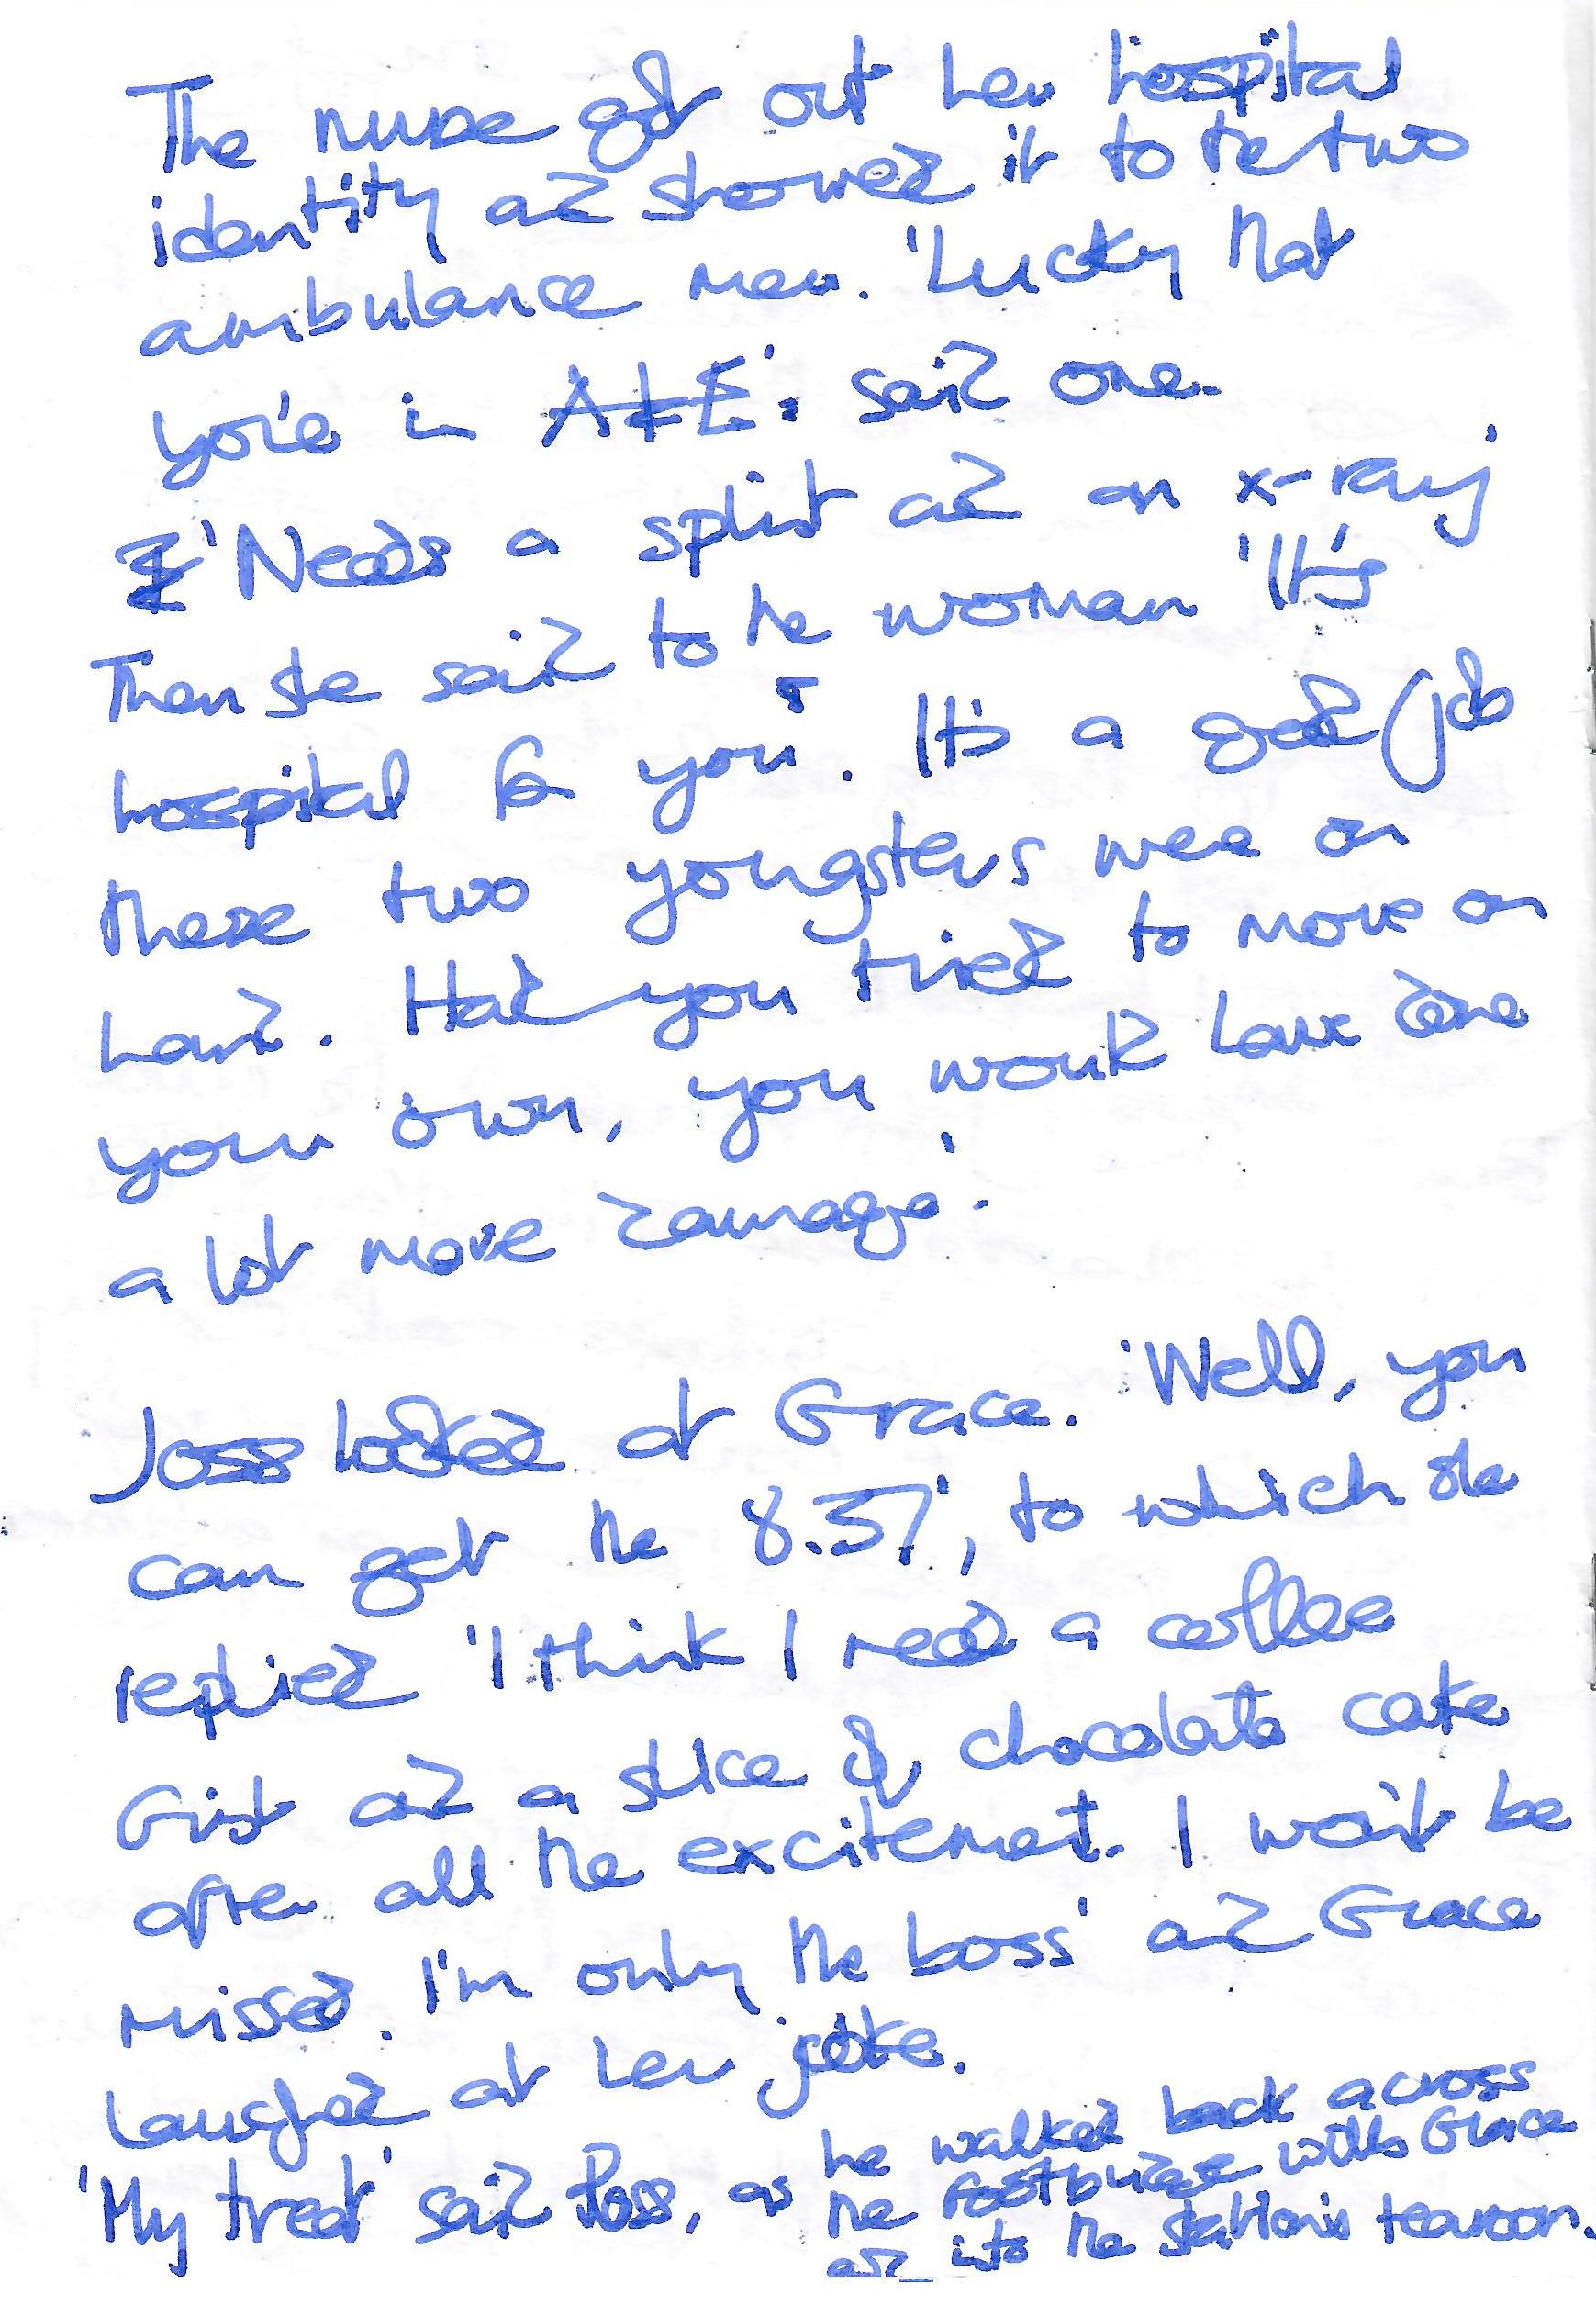 The nurse got out her hospital
identity and showed it to the two
ambulance men. 'Lucky that
you're in A+E', said one.
'Needs a split and an x-ray'
Then she said to the woman 'It's
hospital for you. It's a good job
these two youngsters were on
hand. Had you tried to move on
your own, you would have done
a lot more damage'.
Joss looked at Grace. 'Well, you
can get the 8.37', to which she
replied 'I think I need a coffee
first and a slice of chocolate cake
after all the excitement. I won't be
missed. I'm only the boss' and Grace
laughed at her joke.
'My treat' said Joss, as he walked back across
the footbridge with Grace
and into the station's tearoom.